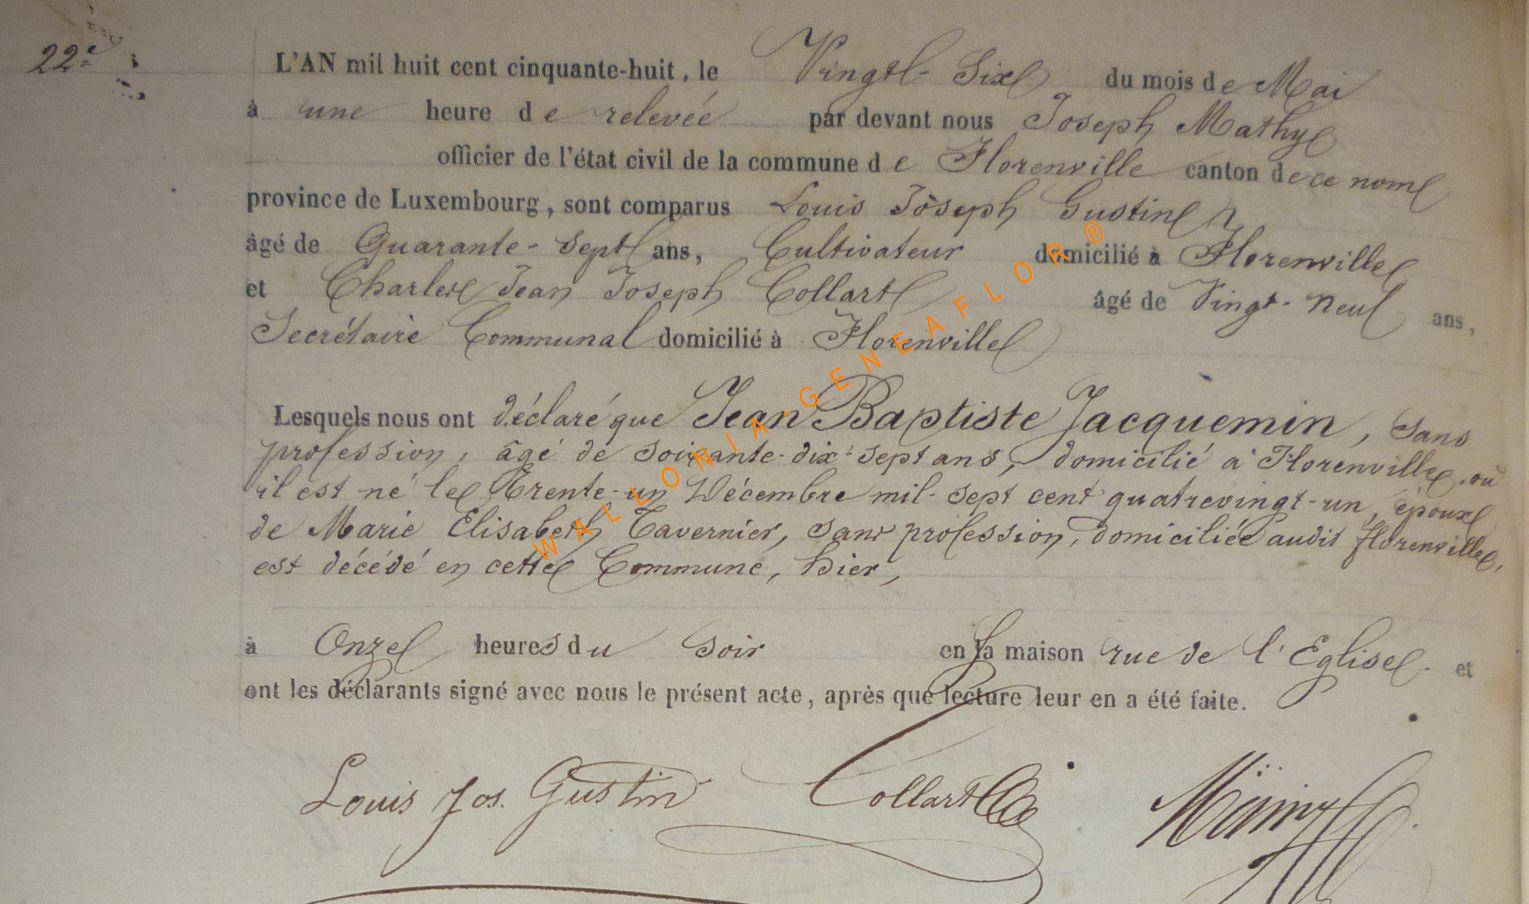 22e
L'AN mil huit cent cinquante-huit, le Vingt-Six du mois de Mai
à une heure de relevée par devant nous Joseph Mathy
officier de l'état civil de la commune de Florenville canton de ce nom
province de Luxembourg, sont comparus Louis Joseph Gustin
âgé de Quarante-Sept ans, Cultivateur domicilié à Florenville
et Charles Jean Joseph Collart âgé de Vingt-neuf ans,
Secrétaire Communal domicilié à Florenville
Lesquels nous ont déclaré que Jean Baptiste Jacquemin, sans
profession, âgé de soixante-dix-sept ans, domicilié à Florenville, où
il est né le Trente-un Décembre mil-sept cent quatrevingt-un, époux
de Marie Elisabeth Tavernier, sans profession, domiciliée audit florenville,
est décédé en cette Commune, hier,
à Onze heures du soir en sa maison rue de l'Eglise et
ont les déclarants signé avec nous le présent acte, après que lecture leur en a été faite.
Louis Jos. Gustin Collart
WALLONIA-GENEAFLOR ®